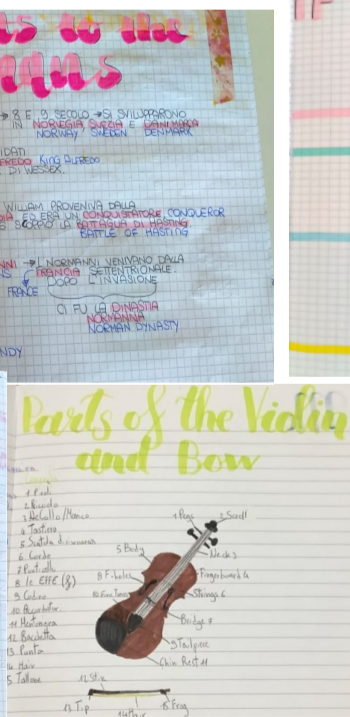 to the
8 E 9 SECOLO → SI SVILUPPARONO
IN NORVEGIA SVEZIA E DANIMARCA
NORWAY SWEDEN DENMARK
KING ALFREDO
DI WESSEX.
WILLIAM PROVENIVA DALLA
ED ERA UN CONQUISTATORE CONQUEROR
SCOPPIO LA BATTAGLIA DI HASTING
BATTLE OF HASTING
→ I NORMANNI VENIVANO DALLA
FRANCIA SETTENTRIONALE.
DOPO L'INVASIONE
FRANCE
CI FU LA DINASTIA
NORMANNA
NORMAN DYNASTY
Parts of the Violin
and Bow
2 Riccio
3 Collo/Manico
4 Tastiera
6 Corde
7 Ponticello
8 le EFFE (f)
9 Cordiera
11 Mentoniera
12 Bacchetta
13 Punta
14 Hair
5 Tallone
1 Pegs
2 Scroll
5 Body
Neck 3
8 F-holes
Fingerboard 4
10 Fine Tuners
Strings 6
Bridge 7
9 Tailpiece
Chin Rest 11
12 Stick
13 Tip
14 Hair
15 Frog